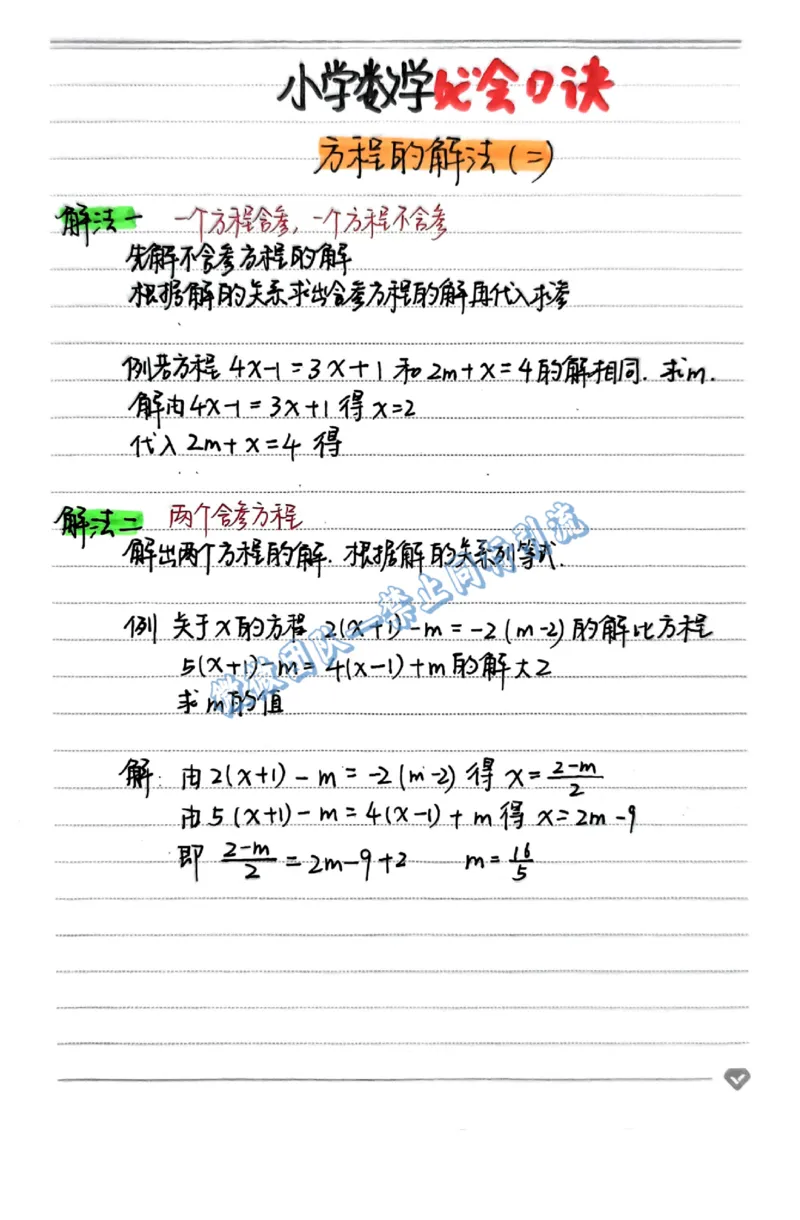 小学数学必会口诀
方程的解法(二)
解法一 一个方程含参,一个方程不含参
先解不含参方程的解
根据解的关系求出含参方程的解再代入求参
例若方程 4x-1=3x+1 和 2m+x=4 的解相同. 求m.
解由4x-1=3x+1 得 x=2
代入 2m+x=4 得
解法二 两个含参方程
解出两个方程的解. 根据解的关系列等式.
例 关于x的方程 2(x+1)-m=-2(m-2) 的解比方程
5(x+1)-m=4(x-1)+m 的解大2
求m的值
解: 由2(x+1)-m=-2(m-2) 得 x=\frac{2-m}{2}
由5(x+1)-m=4(x-1)+m 得 x=2m-9
即 \frac{2-m}{2}=2m-9+2 m=\frac{16}{5}
团队一禁止同行引流